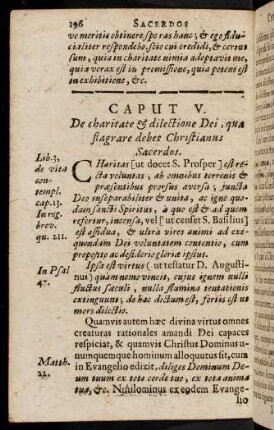 196 SACERDOS
ve meritis obtinere spe ras hanc; & ego fidu-
cialiter respondebo, scio cui credidi, & certus
sum, quia in charitate nimia adoptavit me,
quia verax est in promissione, quia potens est
in exhibitione, &c.
CAPUT V.
De charitate & dilectione Dei, qua
flagrare debet Christianus
Sacerdos.
Lib. 3,
de vita
con-
templ.
cap. 13.
In reg.
brev.
qu. 211.
CHaritas [ut docet S. Prosper] est re-
cta voluntas, ab omnibus terrenis &
præsentibus prorsus aversa, juncta
Deo inseparabiliter & unita, ac igne quo-
dam sancti Spiritus, à quo est & ad quem
refertur, incensa, vel [ut censet S. Basilius]
est assidua, & ultra vires animi ad exe-
quendam Dei voluntatem contentio, cum
proposito ac desiderio gloriæ ipsius.
In Psal
47.
Ipsa est virtus (ut testatur D. Augusti-
nus) quam nemo vincit, cujus ignem nulli
fluctus sæculi, nulla flamina tentationis
extinguunt; de hac dictum est, fortis est ut
mors dilectio.
Quamvis autem hæc divina virtus omnes
creaturas rationales amandi Dei capaces
respiciat, & quamvis Christus Dominus u-
numquemque hominum alloquutus sit, cum
Matth.
22.
in Evangelio edixit, diliges Dominum De-
um tuum ex toto corde tuo, ex tota anima
tua, &c. Nihilominus ex eodem Evange-
lio